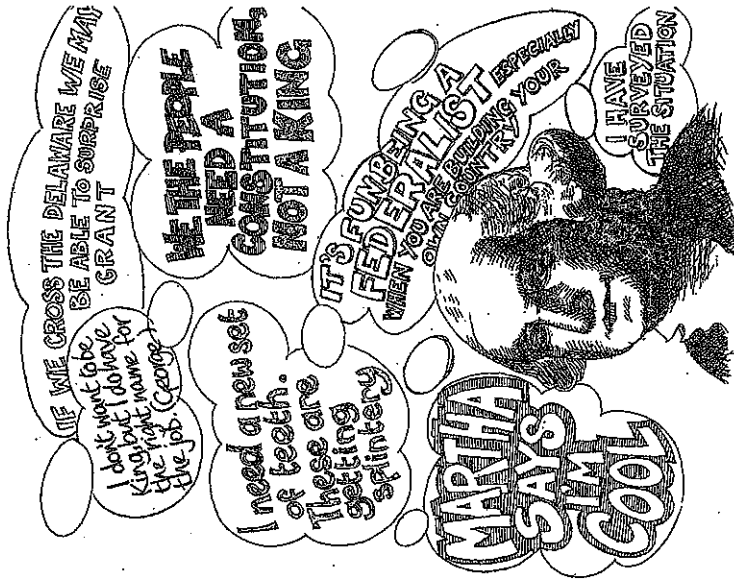 IF WE CROSS THE DELAWARE WE MAY
BE ABLE TO SURPRISE
GRANT
I dont want to be
King but I do have
the right name for
the job. (George)
WE THE PEOPLE
NEED A
CONSTITUTION,
NOT A KING
I need a new set
of teeth.
These are
getting
splintery
IT'S FUN BEING A
FEDERALIST ESPECIALLY
WHEN YOU ARE BUILDING YOUR
OWN COUNTRY
I HAVE
SURVEYED
THE SITUATION
MARTHA
SAYS
I'M
COOL